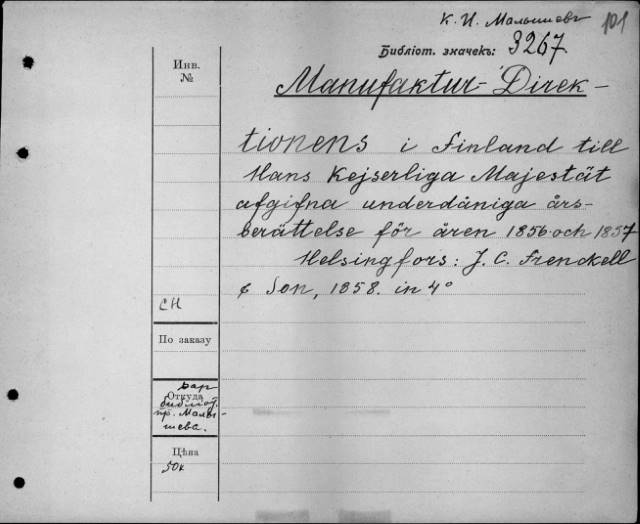 К. И. Малышевъ
101
Библіот. значекъ: 3267
Инв.
№
Manufaktur-Direk-
tionens i Finland till
Hans Kejserliga Majestät
afgifna underdåniga års-
berättelse för åren 1856 och 1857
Helsingfors: J. C. Frenckell
& Son, 1858. in 4°
СН
По заказу
Откуда
Дар
библіот.
пр. Малы-
шева.
Цѣна
50к